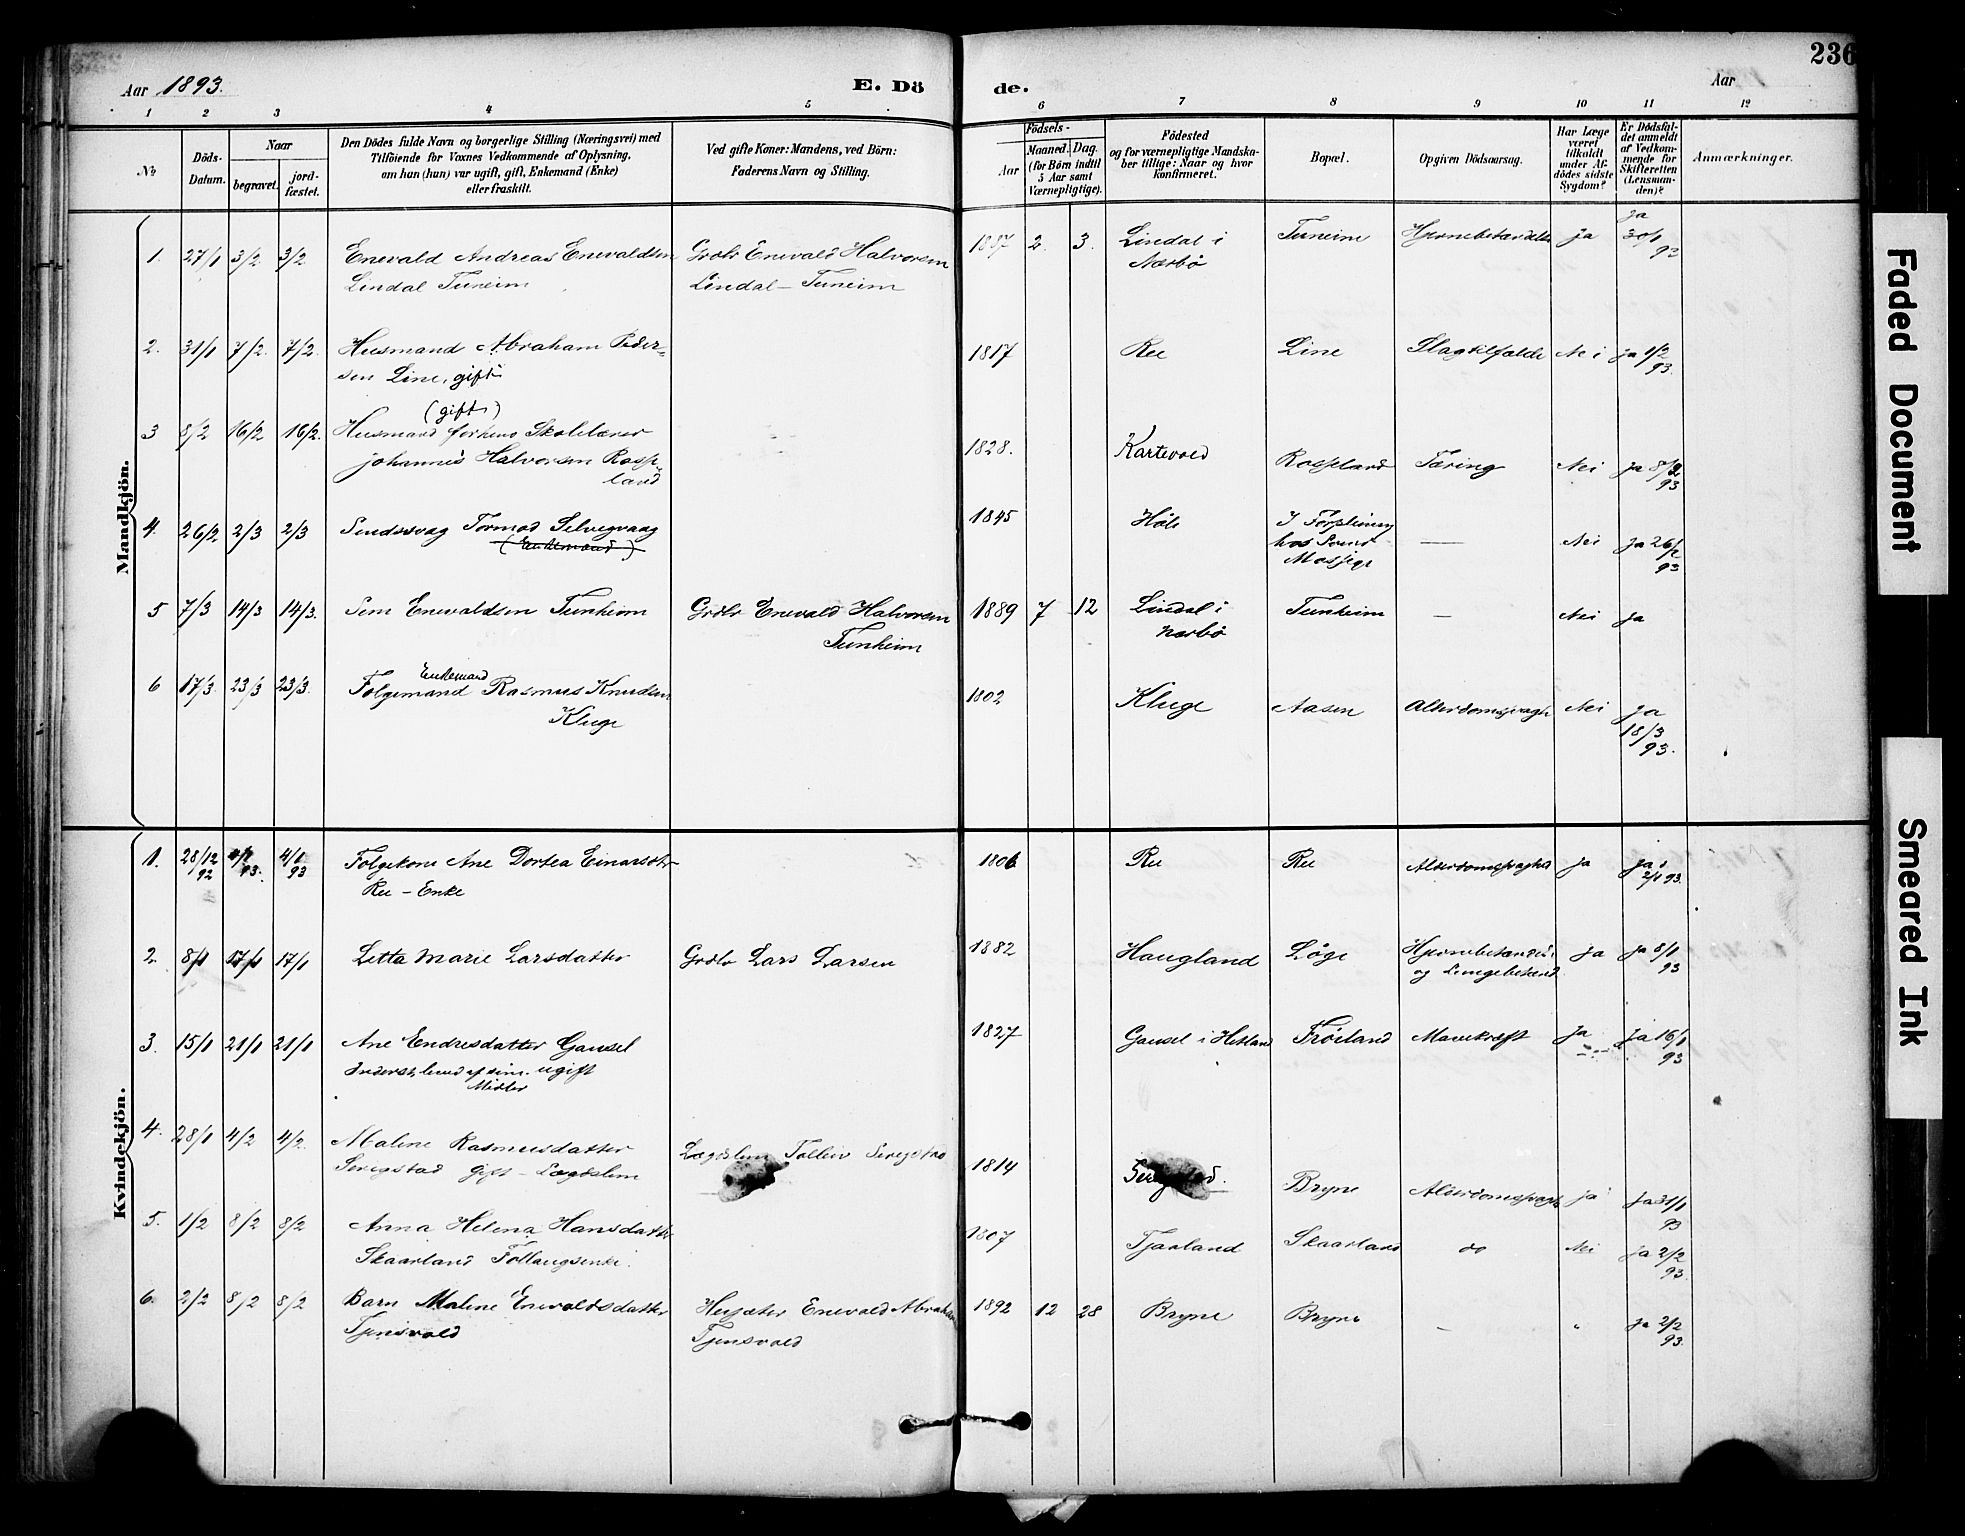 236
Aar 1893.
E. Dö
de.
Aar
1 2 3 4 5 6 7 8 9 10 11 12
No
Döds-
Datum.
Naar
begravet.
jord-
fæstet.
Den Dödes fulde Navn og borgerlige Stilling (Næringsvei) med
Tilföiende for Voxnes Vedkommende af Oplysning,
om han (hun) var ugift, gift, Enkemand (Enke)
eller fraskilt.
Ved gifte Koner: Mandens, ved Börn:
Faderens Navn og Stilling.
Födsels-
Aar
Maaned. Dag.
(for Börn indtil
5 Aar samt
Værnepligtige).
Födested
og for værnepligtige Mandska-
ber tillige: Naar og hvor
konfirmeret.
Bopæl.
Opgiven Dödsaarsag.
Har Læge
været
tilkaldt
under Af-
dödes sidste
Sygdom?
Er Dödsfal-
det anmeldt
af Vedkom-
mende for
Skifteretten
(Lensman-
den)?
Anmærkninger.
Mandkjön.
1. 27/1 3/2 3/2 Enevald Andreas Enevaldsen Grdbr Enevald Halvorsen 1887 2. 3. Lindal i Tuneim Hjernebetændelse ja ja 30/1 93
Lindal Tuneim Lindal - Tuneim Nærbö
2. 31/1 7/2. 7/2. Husmand Abraham Peder- 1817 Ree Line Slagtilfælde Nei ja 1/2 93.
sen Line, gift
(gift)
3 8/2 16/2 16/2. Husmand forhenv Skolelærer 1828. Kartevold Rosseland Tæring Nei ja 8/2 93
Johannes Halvorsen Rosse-
land
4. 26/2 2/3 2/3 Sindssvag Tormod Selvegvaag 1845 Höle I Forpleining — Nei Ja 26/2 93
(Enkemand) hos Svend
5 7/3 14/3 14/3. Sem Enevaldsen Tunheim Grdbr Enevald Halvorsen 1889 7 12 Lindal i Tunheim — Nei ja
Tunheim Nærbö
Enkemand
6 17/3. 23/3 23/3. Folgemand Rasmus Knudsen 1802 Kluge Aasen Alderdomssvagh Nei Ja 18/3 93.
Kluge
Kvindekjön.
1. 28/12 92 4/1 93. 4/1 93 Folgekone Ane Dortea Einarsdtr 1806 Ree Ree Alderdomssvaghed ja ja 2/1 93.
Ree - Enke
2. 8/1 17/1 17/1 Letta Marie Larsdatter Grdbr Lars Larsen 1882 Haugland Löge Hjernebetændelse ja ja 8/1 93
og Lungebetænd
3. 15/1 21/1 21/1 Ane Endresdatter Gausel 1827 Gausel i Hetland Fröiland Mavekræft Ja ja 16/1 93
Inderst, lever af sine ugift
Midler
4. 28/1 4/2 4/2. Malene Rasmusdatter Lægdslem Tollev Serigstad 1814 Serigstad. Bryne Alderdomssvagh ja ja 31/1 93
Serigstad gift - Lægdslem
5. 1/2 8/2 8/2 Anna Helena Hansdatter 1807 Tjaaland Skaarland do Nei ja 2/2 93.
Skaarland Follaugsenke.
6. 2/2 8/2 8/2 Barn Malene Enevaldsdatter Enevald Abraham 1892 12 28 Bryne Bryne — " ja 2/2 93.
Tjensvold Tjensvold
Faded Document
Smeared Ink